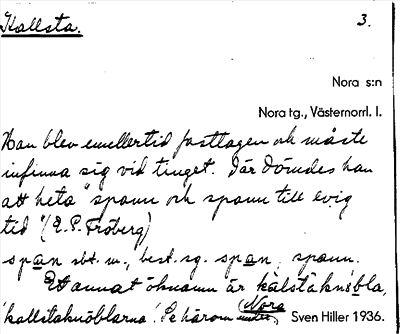 Kallsta. 3.
Nora s:n
Nora tg., Västernorrl. l.
Han blev emellertid fasttagen och måste
infinna sig vid tinget. Där dömdes han
att heta "spann och spann till evig
tid" (E.P. Fröberg)
span sbt. m., best. sg. span, spann.
Ett annat öknamn är kälstäknöbla,
'kallstaknöblarna'. Se härom Nora
Sven Hiller 1936.